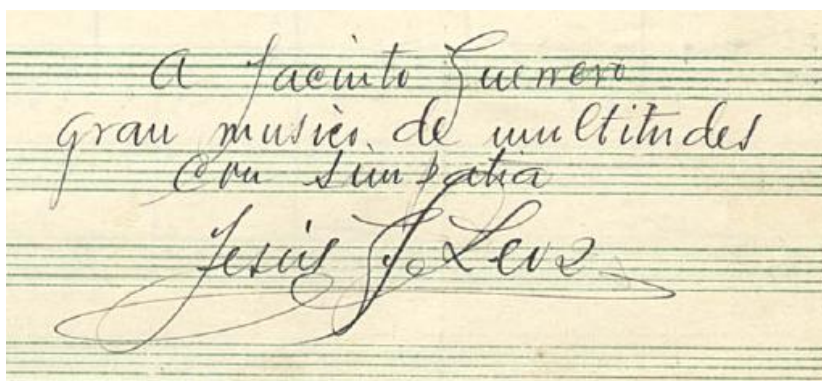 A Jacinto Guerrero
gran musico de multitudes
con simpatia
Jesús G. Leoz